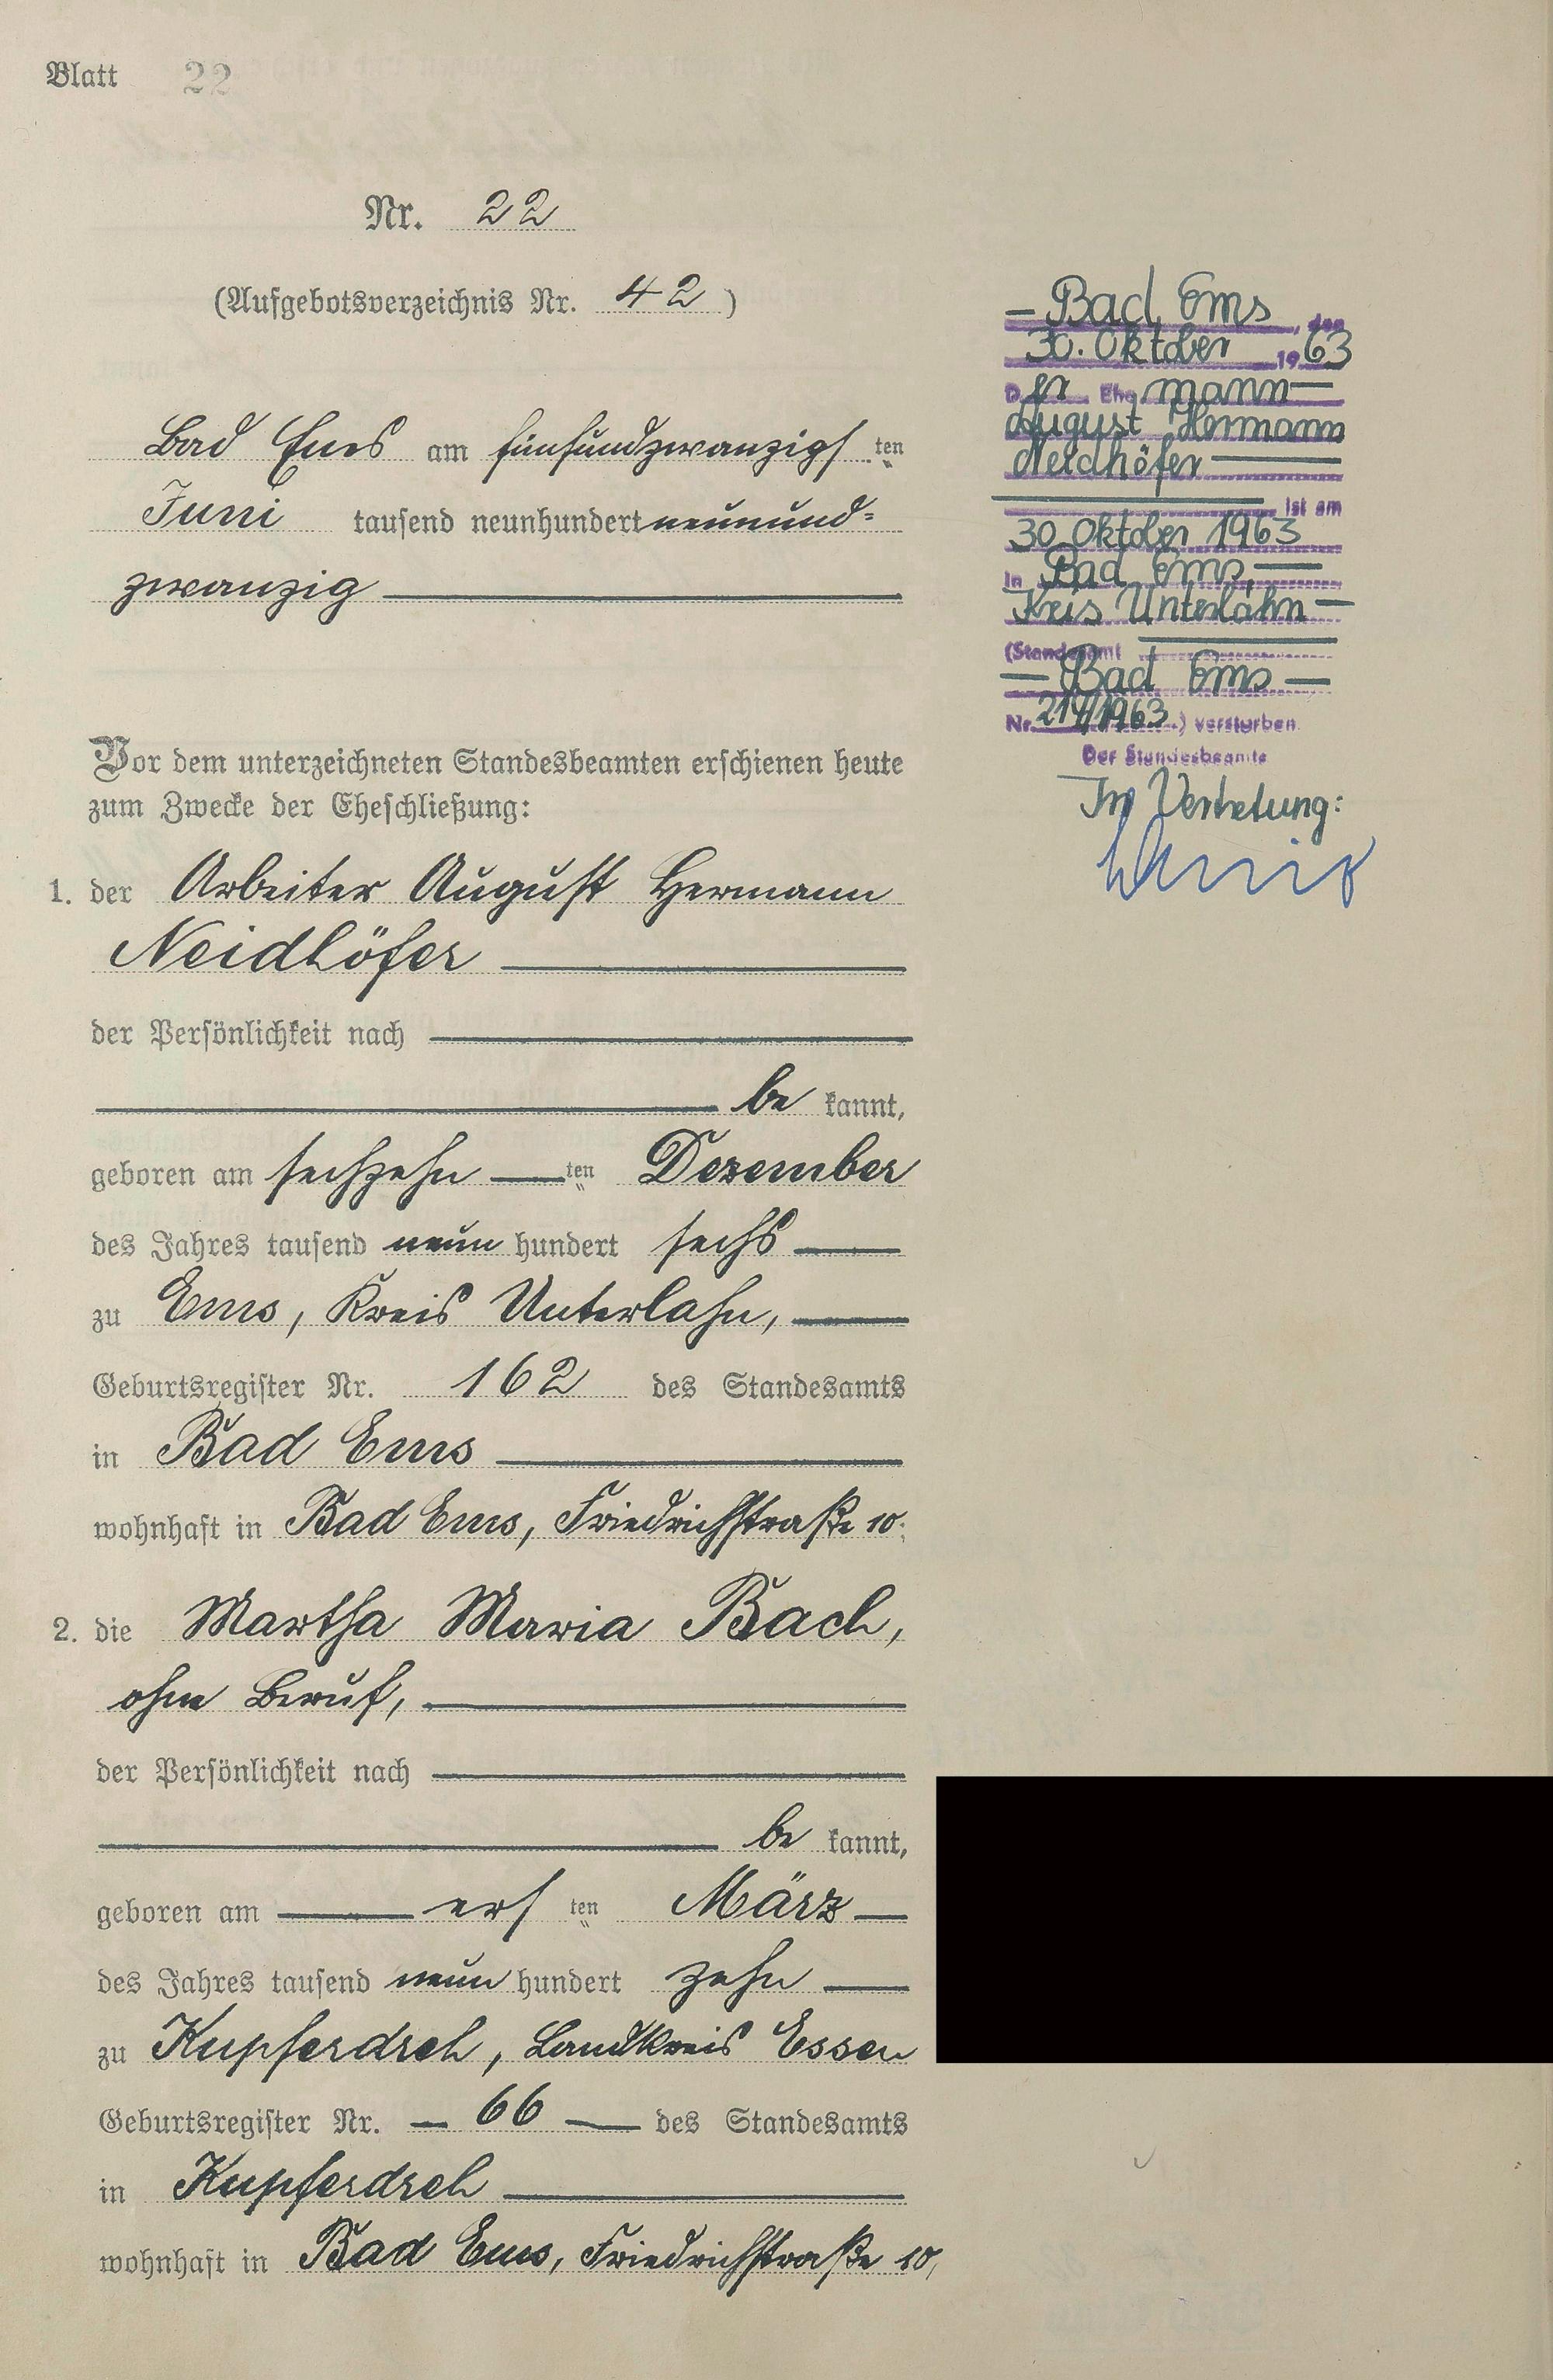 Blatt 22
Nr. 22
(Aufgebotsverzeichnis Nr. 42)
Bad Ems am fünfundzwanzigsten
Juni tausend neunhundert neunund-
zwanzig
Vor dem unterzeichneten Standesbeamten erschienen heute
zum Zwecke der Eheschließung:
1. der Arbeiter August Hermann
Neidhöfer
der Persönlichkeit nach
be kannt,
geboren am sechzehn ten Dezember
des Jahres tausend neun hundert sechs
zu Ems, Kreis Unterlahn,
Geburtsregister Nr. 162 des Standesamts
in Bad Ems
wohnhaft in Bad Ems, Friedrichstraße 10;
2. die Martha Maria Bach,
ohne Beruf,
der Persönlichkeit nach
be kannt,
geboren am ersten März
des Jahres tausend neun hundert zehn
zu Kupferdreh, Landkreis Essen
Geburtsregister Nr. 66 des Standesamts
in Kupferdreh
wohnhaft in Bad Ems, Friedrichstraße 10,
Bad Ems, den
30. Oktober 1963
Der Ehemann
August Hermann
Neidhöfer
ist am
30. Oktober 1963
in Bad Ems,
Kreis Unterlahn
(Standesamt
Bad Ems
Nr. /1963) verstorben.
Der Standesbeamte
In Vertretung: